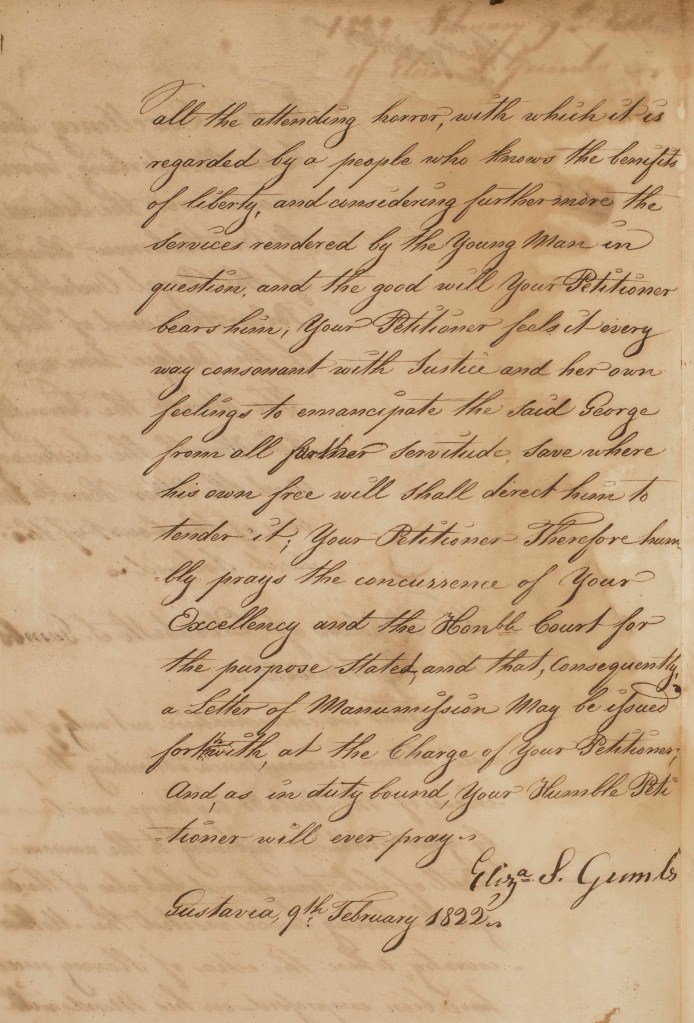 all the attending horror, with which it is
regarded by a people who knows the benefits
of liberty, and considering further more the
services rendered by the Young Man in
question, and the good will Your Petitioner
bears him; Your Petitioner feels it every
way consonant with Justice and her own
feelings to emancipate the said George
from all further servitude, save where
his own free will shall direct him to
tender it; Your Petitioner Therefore hum-
-bly prays the concurrence of Your
Excellency and the Honble Court for
the purpose stated, and that, Consequently,
a Letter of Manumission May be issued
forthwith, at the Charge of Your Petitioner;
And, as in duty bound, Your Humble Peti
-tioner will ever pray.
Eliza S. Gumbs
Gustavia, 9th February 1822.